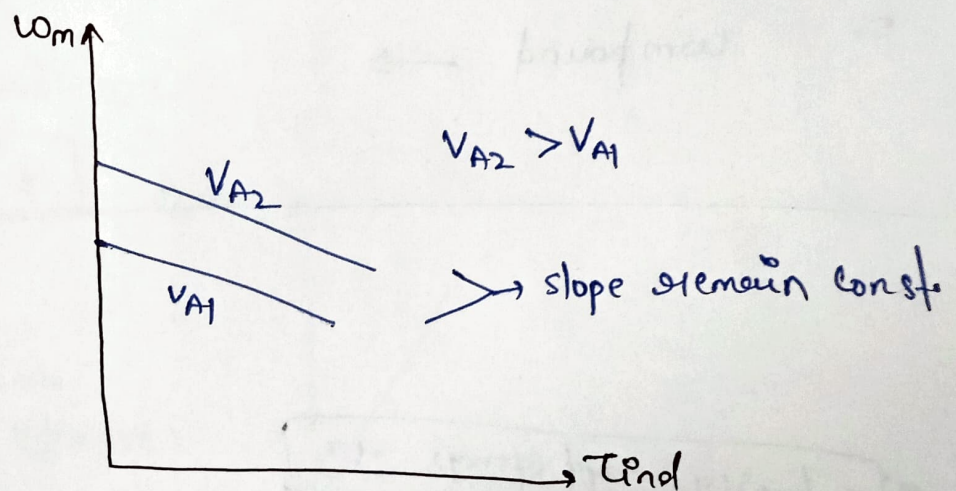 ωm
VA2 > VA1
VA2
VA1
→ slope remain const.
τind